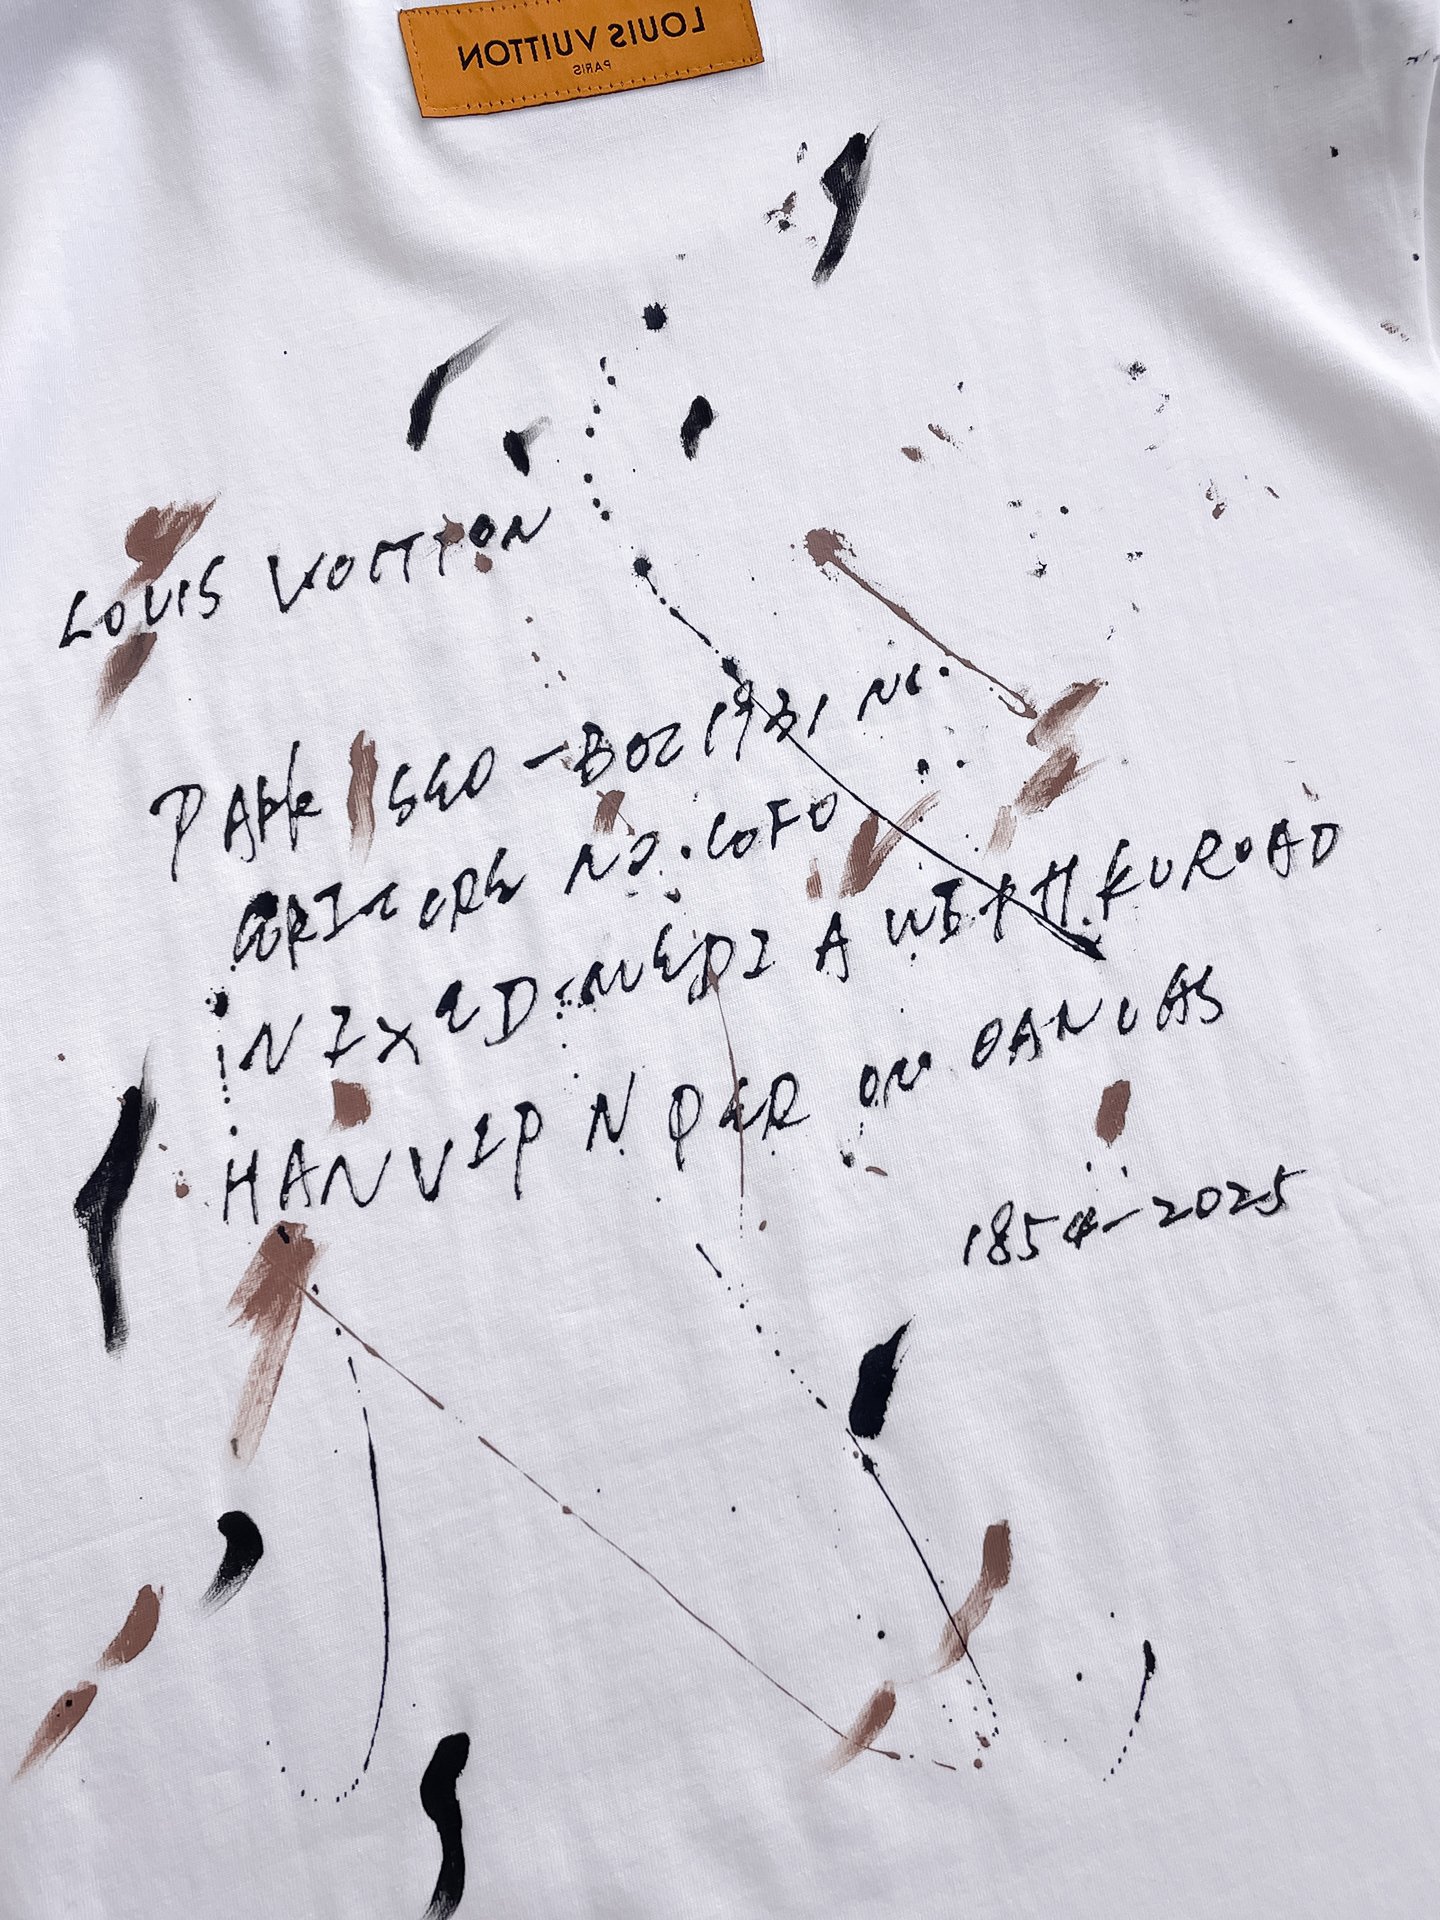 LOUIS VUITTON
PARIS
LOUIS VOITTON
PARK SEO-BO 1931 NC.
ECRITURE NO. COFO
NIXED-MEDIA WITH KUROAD
HANVEP N PER ON CANVAS
1854-2025